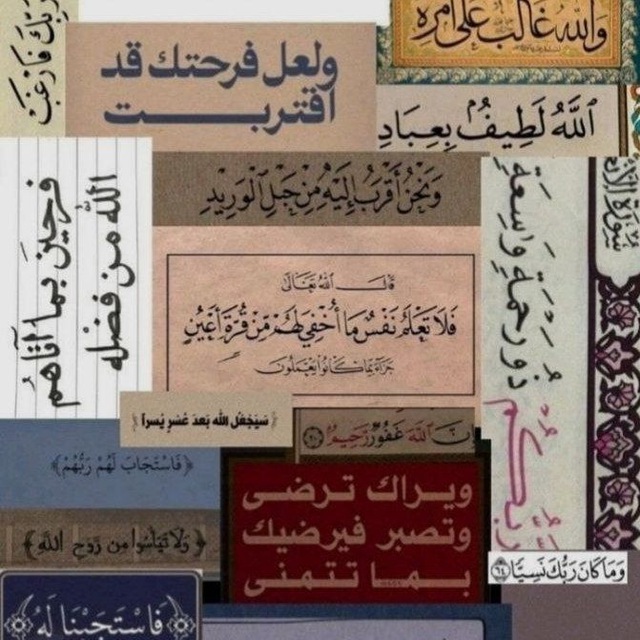 رَبِّكَ فَارْغَبْ
ولعل فرحتك قد
اقتربت
وَاللهُ غَالِبٌ عَلَى أَمْرِهِ
ٱللَّهُ لَطِيفٌۢ بِعِبَادِ
وَنَحْنُ أَقْرَبُ إِلَيْهِ مِنْ حَبْلِ الْوَرِيدِ
فرحين بما آتاهم
الله من فضله
قال اللهُ تَعَالَى
فَلَا تَعْلَمُ نَفْسٌ مَا أُخْفِيَ لَهُمْ مِنْ قُرَّةِ أَعْيُنٍ
جَزَاءً بِمَا كَانُوا يَعْمَلُونَ
رَبُّكُمْ
ذُو رَحْمَةٍ وَاسِعَةٍ
سُورَةُ
﴿ سَيَجْعَلُ اللهُ بَعْدَ عُسْرٍ يُسْراً ﴾
إِنَّ اللَّهَ غَفُورٌ رَّحِيمٌ
﴿فَاسْتَجَابَ لَهُمْ رَبُّهُمْ﴾
ويراك ترضى
وتصبر فيرضيك
بما تتمنى
﴿ وَلَا تَيْأَسُوا مِن رَّوْحِ اللَّهِ ﴾
وَمَا كَانَ رَبُّكَ نَسِيًّا ﴿٦٤﴾
﴿فَاسْتَجَبْنَا لَهُ﴾